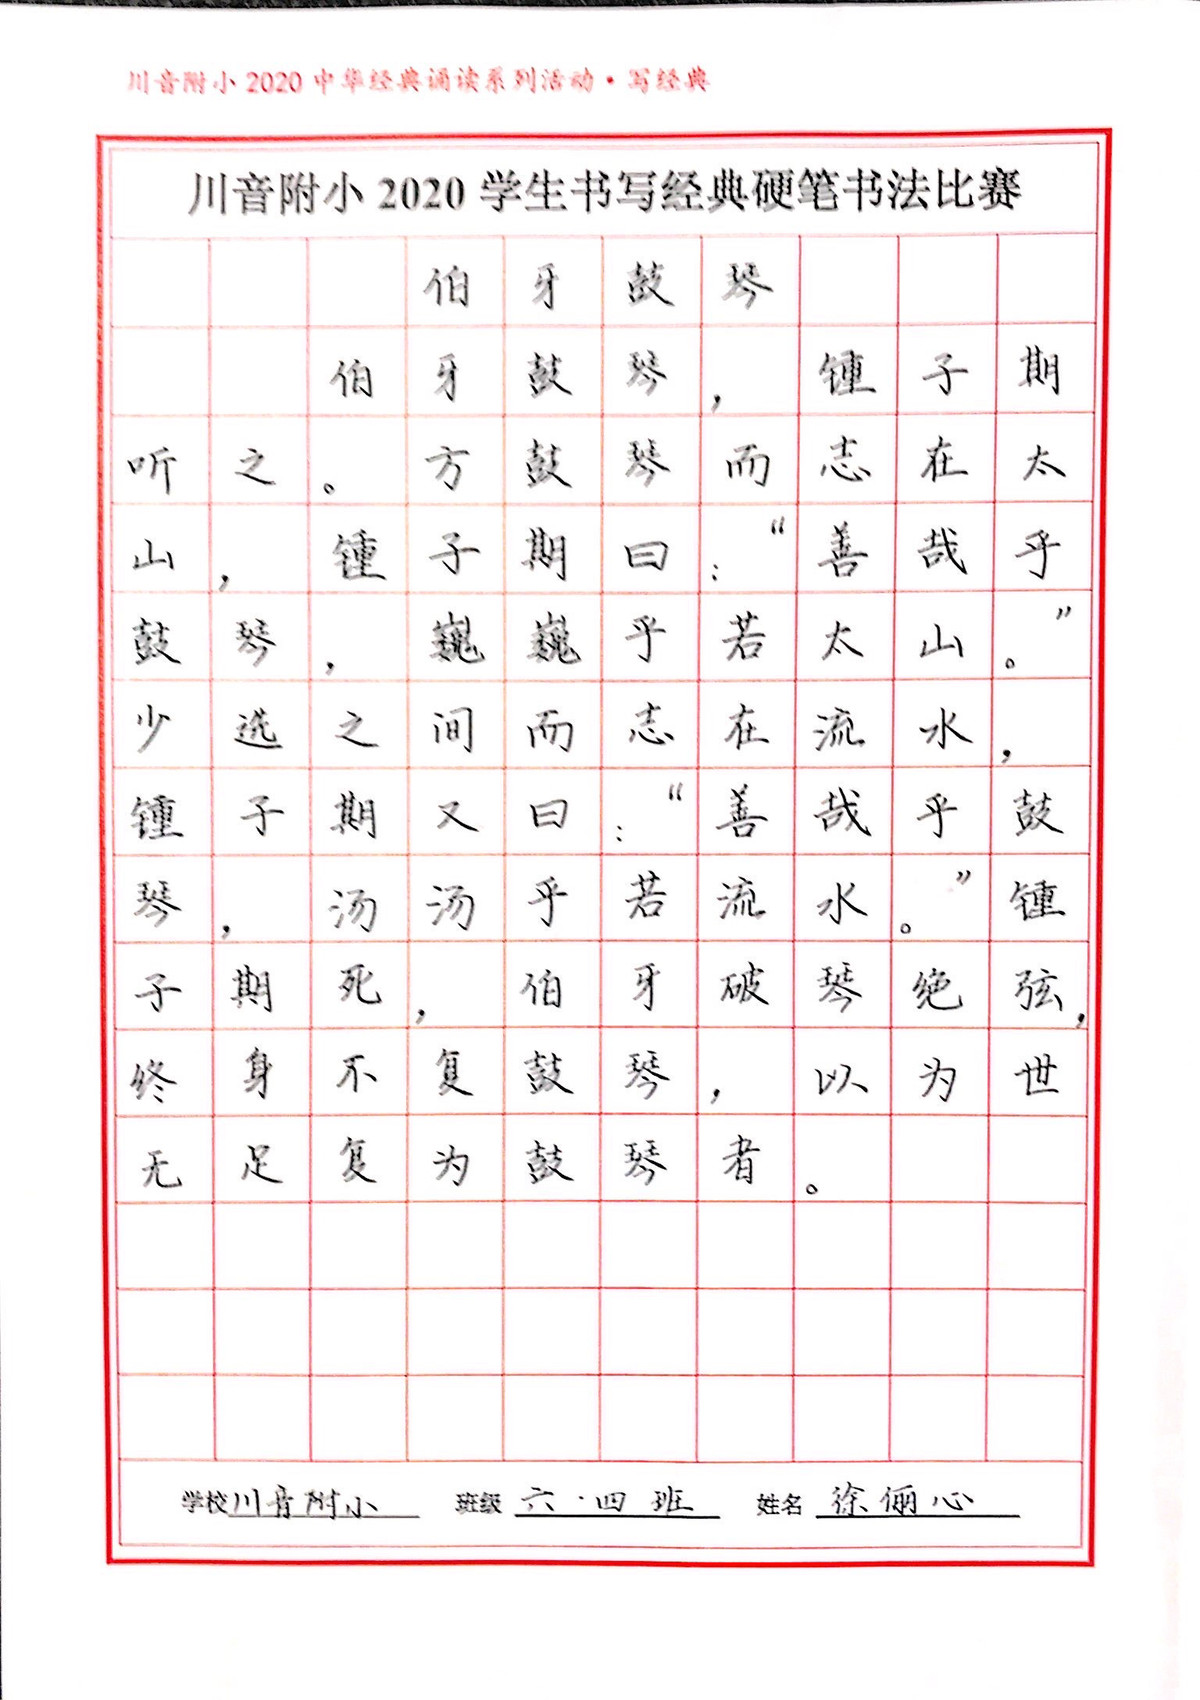 川音附小2020中华经典诵读系列活动·写经典
川音附小2020学生书写经典硬笔书法比赛
伯牙鼓琴
伯牙鼓琴，锺子期
听之。方鼓琴而志在太
山，锺子期曰：“善哉乎
鼓琴，巍巍乎若太山。”
少选之间而志在流水，
锺子期又曰：“善哉乎鼓
琴，汤汤乎若流水。”锺
子期死，伯牙破琴绝弦，
终身不复鼓琴，以为世
无足复为鼓琴者。
学校川音附小 班级六·四班 姓名徐俪心